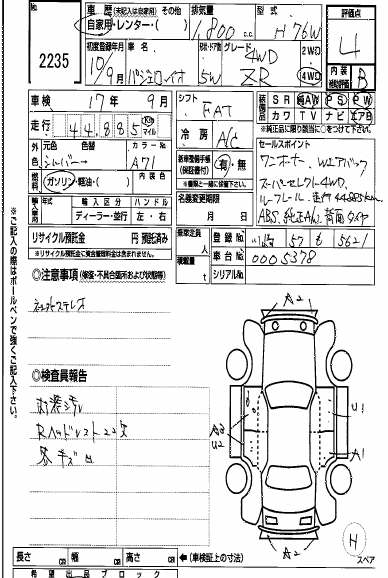 2235
車歴 (未記入は自家用) その他
自家用・レンター・( )
排気量
1,800 c.c.
型式
H76W
評価点
4
初度登録年月
10/9月
車名
パジェロイオ
形状・ドア数
5W
グレード
4WD
ZR
2WD
4WD
内装補助評価
B
車検 17年 9月
シフト
FAT
装備品
SR 純AW PS PW
カワ TV ナビ エアB
*純正品に限り○をつけて下さい。
走行 44,885 Km マイル
冷房
A/C
セールスポイント
ワンオーナー、Wエアバック
スーパーセレクト4WD、
ルーフレール、走行44885km
ABS 純正AW 背面タイヤ
外色
元色 色替
シルバー→
カラーNo.
A71
新車整備手帳(保証書付)
有・無
*書類と一緒に保管下さい。
燃料
ガソリン・軽油・( )
内装色
輸入車用
輸入区分
ディーラー・並行
ハンドル
左・右
名義変更期限
月 日
リサイクル預託金 円 預託済み
*リサイクル預託金に資金管理料金は含まれません。
乗車定員 人
登録No.
川崎 57 も 5621
積載量 t
車台No.
0005378
シリアルNo.
◎注意事項 (検査・不具合箇所および状態等)
◎検査員報告
内装シミ
Rヘッドレスト22欠
各キズ凹
※ご記入の際はボールペンで強くご記入下さい。
A2
A3
U2
U1
A1
A2
H
スペア
長さ cm 幅 cm 高さ cm ←(車検証上の寸法)
希望出品ブロック